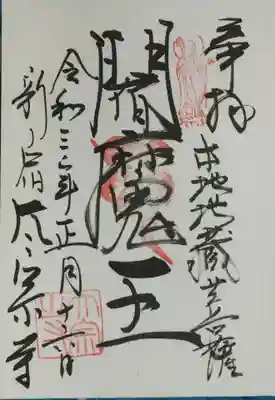 奉拝
本地地蔵菩薩
閻魔王
令和三年正月十六日
新 宗寺